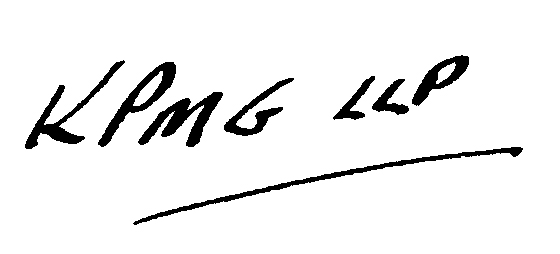 KPMG LLP